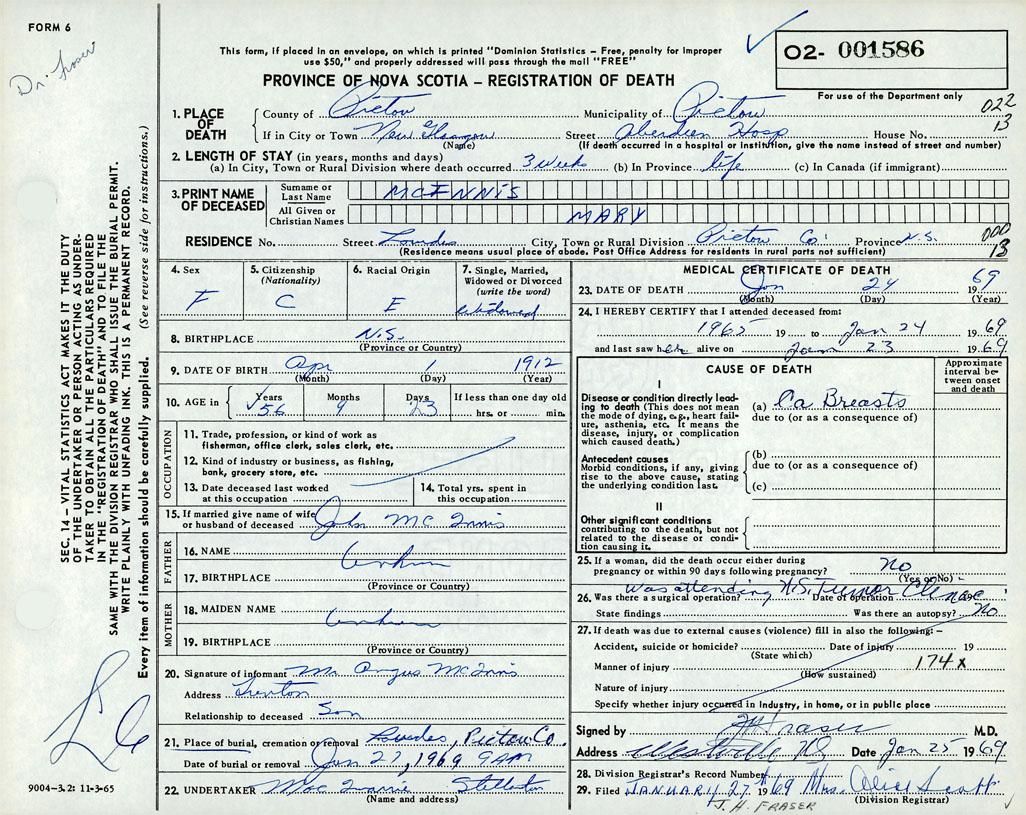 FORM 6
Dr. Fraser
This form, if placed in an envelope, on which is printed "Dominion Statistics – Free, penalty for improper
use $50," and properly addressed will pass through the mail "FREE"
PROVINCE OF NOVA SCOTIA – REGISTRATION OF DEATH
O2- 001586
For use of the Department only
022
13
1. PLACE OF DEATH
County of Pictou Municipality of Pictou
If in City or Town New Glasgow Street Aberdeen Hosp House No.
(Name) (If death occurred in a hospital or institution, give the name instead of street and number)
2. LENGTH OF STAY (in years, months and days)
(a) In City, Town or Rural Division where death occurred 3 weeks (b) In Province life (c) In Canada (if immigrant)
3. PRINT NAME OF DECEASED
Surname or Last Name MCINNIS
All Given or Christian Names MARY
000
13
RESIDENCE No. Street Lourdes City, Town or Rural Division Pictou Co. Province N.S.
(Residence means usual place of abode. Post Office Address for residents in rural parts not sufficient)
4. Sex F
5. Citizenship (Nationality) C
6. Racial Origin E
7. Single, Married, Widowed or Divorced (write the word) widowed
8. BIRTHPLACE N.S.
(Province or Country)
9. DATE OF BIRTH Apr 1 1912
(Month) (Day) (Year)
10. AGE in Years 56 Months 9 Days 23 If less than one day old hrs. or min.
OCCUPATION
11. Trade, profession, or kind of work as
fisherman, office clerk, sales clerk, etc.
12. Kind of industry or business, as fishing,
bank, grocery store, etc.
13. Date deceased last worked
at this occupation
14. Total yrs. spent in
this occupation
15. If married give name of wife
or husband of deceased John Mc Innis
FATHER
16. NAME
17. BIRTHPLACE
(Province or Country)
MOTHER
18. MAIDEN NAME
19. BIRTHPLACE
(Province or Country)
20. Signature of informant Mr Angus McInnis
Address Trenton
Relationship to deceased Son
21. Place of burial, cremation or removal Lourdes, Pictou Co.
Date of burial or removal Jan 27, 1969 9 AM
22. UNDERTAKER Stellarton
(Name and address)
MEDICAL CERTIFICATE OF DEATH
23. DATE OF DEATH Jan 24 1969
(Month) (Day) (Year)
24. I HEREBY CERTIFY that I attended deceased from:
1965 19 to Jan 24 1969
and last saw her alive on Jan 23 1969
CAUSE OF DEATH
Approximate interval between onset and death
I
Disease or condition directly leading
to death (This does not mean
the mode of dying, e.g., heart failure,
asthenia, etc. It means the
disease, injury, or complication
which caused death.)
(a) Ca Breasts
due to (or as a consequence of)
Antecedent causes
Morbid conditions, if any, giving
rise to the above cause, stating
the underlying condition last.
(b)
due to (or as a consequence of)
(c)
II
Other significant conditions
contributing to the death, but not
related to the disease or condition
causing it.
25. If a woman, did the death occur either during
pregnancy or within 90 days following pregnancy? no
(Yes or No)
was attending N.S. Tumor Clinic
26. Was there a surgical operation? Date of operation 19
State findings Was there an autopsy? No
27. If death was due to external causes (violence) fill in also the following: –
Accident, suicide or homicide? Date of injury 19
(State which)
Manner of injury 174x
(How sustained)
Nature of injury
Specify whether injury occurred in industry, in home, or in public place
Signed by Fraser M.D.
Address Westville NS Date Jan 25 1969
28. Division Registrar's Record Number
29. Filed JANUARY 27th 1969 Mrs. Alice Scott
(Division Registrar)
J. H. FRASER
SEC. 14 – VITAL STATISTICS ACT MAKES IT THE DUTY
OF THE UNDERTAKER OR PERSON ACTING AS UNDERTAKER
TO OBTAIN ALL THE PARTICULARS REQUIRED
IN THE "REGISTRATION OF DEATH" AND TO FILE THE
SAME WITH THE DIVISION REGISTRAR WHO SHALL ISSUE THE BURIAL PERMIT.
WRITE PLAINLY WITH UNFADING INK. THIS IS A PERMANENT RECORD.
Every item of information should be carefully supplied. (See reverse side for instructions.)
9004–3.2: 11-3-65